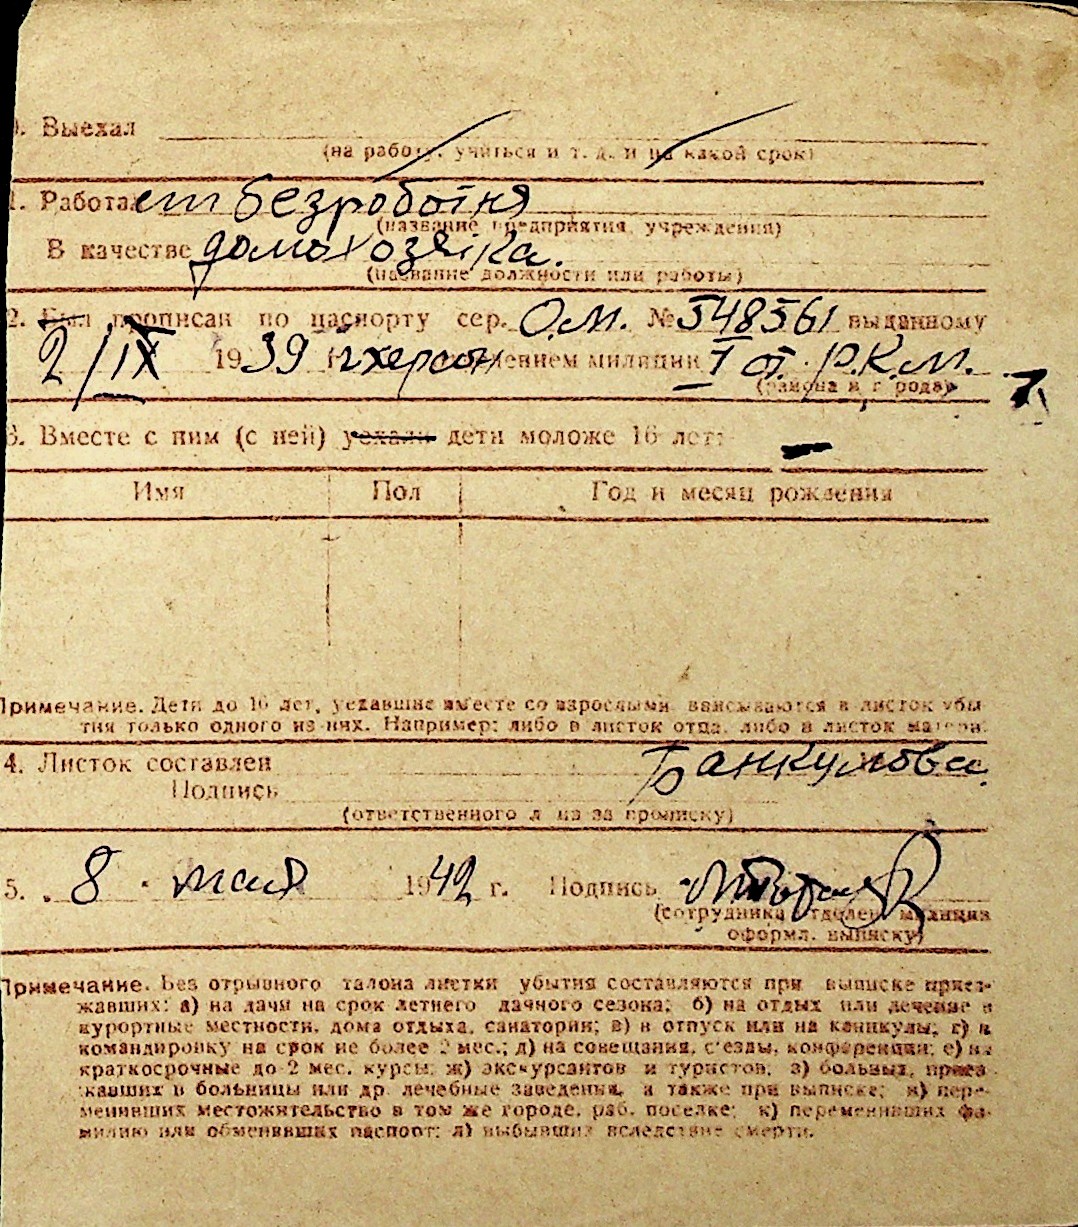 0. Выехал
(на работу, учиться и т. д. и на какой срок)
1. Работает безработня
(название предприятия, учреждения)
В качестве домохозяйка.
(название должности или работы)
2. Был прописан по паспорту сер. О.М. № 548561 выданному
2/IX 1939 г. г. Херсон отделением милиции I от. Р.К.М.
(района и города)
3. Вместе с ним (с ней) уехали дети моложе 16 лет: —
Имя Пол Год и месяц рождения
Примечание. Дети до 16 лет, уехавшие вместе со взрослыми, вписываются в листок убы-
тия только одного из них. Например: либо в листок отца, либо в листок матери.
4. Листок составлен
Подпись
(ответственного лица за прописку)
5. 8 мая 1942 г. Подпись
(сотрудника отделен. милиции
оформл. выписку)
Примечание. Без отрывного талона листки убытия составляются при выписке приез-
жавших: а) на дачи на срок летнего дачного сезона; б) на отдых или лечение в
курортные местности, дома отдыха, санатории; в) в отпуск или на каникулы; г) в
командировку на срок не более 2 мес.; д) на совещания, с'езды, конференции; е) на
краткосрочные до 2 мес. курсы; ж) экскурсантов и туристов; з) больных, приез-
жавших в больницы или др. лечебные заведения, а также при выписке; и) пере-
менивших местожительство в том же городе, раб. поселке; к) переменивших фа-
милию или обменявших паспорт; л) выбывших вследствие смерти.